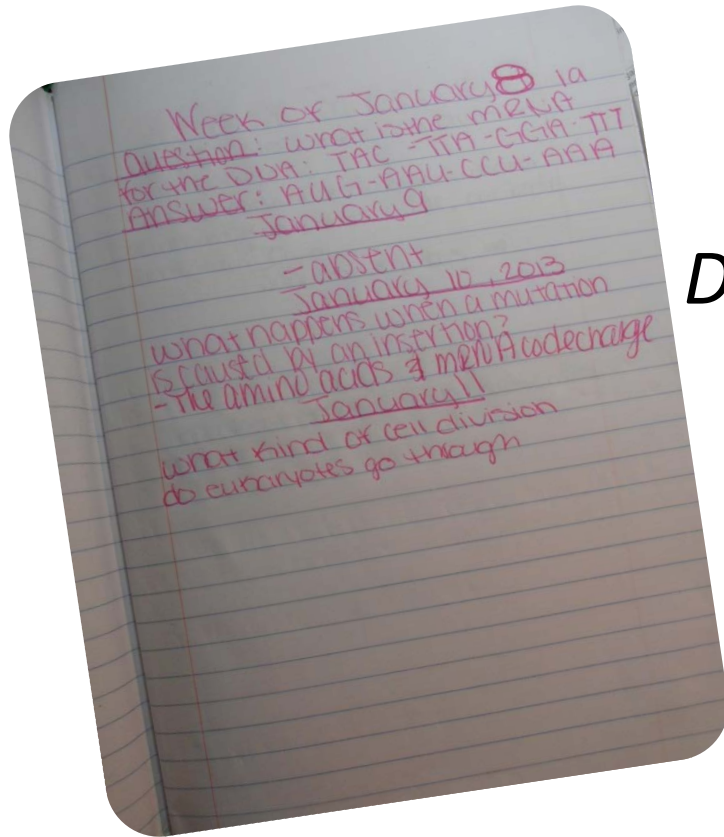 Week of January 8 1a
Question: what is the mRNA
for the DNA: TAC-TTA-GGA-TTT
Answer: AUG-AAU-CCU-AAA
January 9
-absent
January 10, 2013
what happens when a mutation
is caused by an insertion?
-The amino acids & mRNA code change
January 11
what kind of cell division
do eukaryotes go through
D